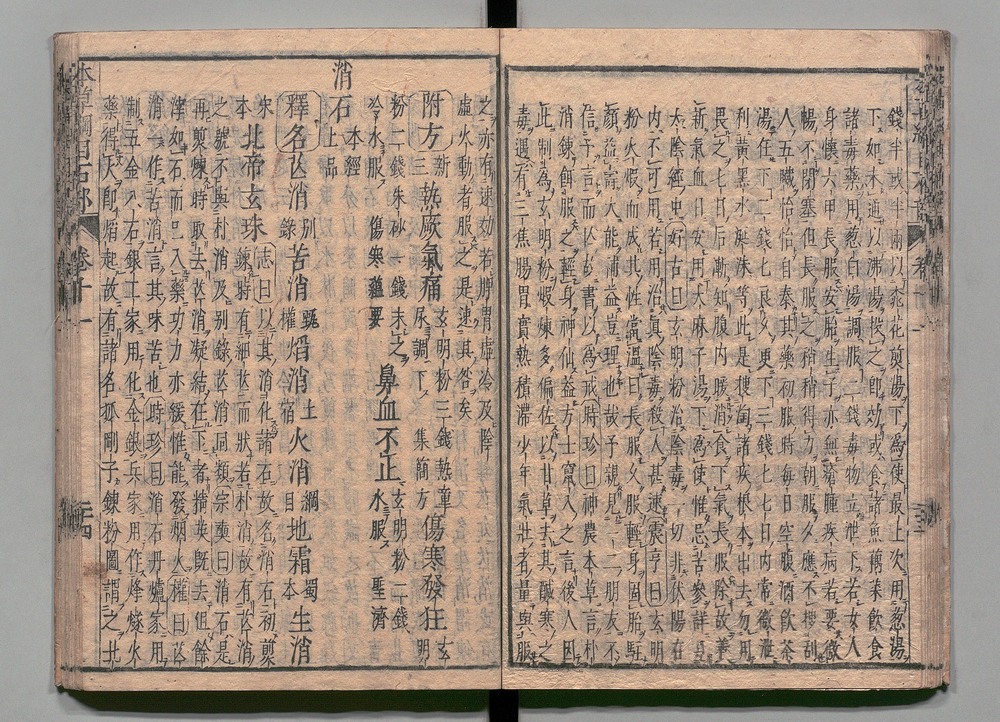 錢半或半兩以桃花煎湯下爲使最上次用葱湯
下如未通以沸湯投之卽効或食諸魚藕菜飲食
諸毒藥用葱白湯調服二錢毒物立泄下若女人
身懷六甲長服安胎生子亦無瘡腫疾病若要微
暢不閉塞但長服之稍稍得力朝服夕應不搜刮
人五臟怡怡自泰其藥初服時每日空腹酒飲茶
湯任下二錢七良久更下三錢七七日內常微泄
利黃黑水與洣等此是搜淘諸疾根本出去勿用
畏之七日后漸知腹內暖消食下氣長服除故養
新氣血日用大麻子湯下爲使惟忌苦參詳
太陰經史好古曰玄明粉治陰毒一切非伏陽在
內不可用若用治眞陰毒殺人甚速震亨曰玄明
粉火煆而成其性當溫曰長服久服輕身固胎駐
顏益壽大能補益豈理也哉予親見一二朋友不
信予言而亡故書以爲戒時珍曰神農本草言朴
消鍊餌服之輕身神仙蓋方士竄入之言後人因
此制爲玄明粉煆煉多偏佐以甘草去其鹹寒之
毒遇有三焦腸胃實熱積滯少年氣壯者量與服
之亦有速効若脾胃虛冷及陰
虛火動者服之是速其咎矣
附方三新熱厥氣痛玄明粉三錢熱童尿調下集簡方傷寒發狂玄明
粉二錢朱砂一錢末之
冷水服傷寒蘊要鼻血不止玄明粉二錢水服聖濟
消石本經上品
釋名芒消別錄苦消甄權焰消土宿火消綱目地霜蜀本生消
宋本北帝玄珠志曰以其消化諸石故名消石初煎
鍊時有細芒而狀若朴消故有芒消
之號不與朴消及別錄芒消同類宗奭曰消石是
再煎煉時取去芒消凝結在下者精英旣去但餘
滓如石而已入藥功力亦緩惟能發烟火權曰芒
消一作苦消言其味苦也時珍曰消石丹爐家用
制五金八石銀工家用化金銀兵家用作烽燧火
藥得火卽焰起故有諸名狐剛子鍊粉圖謂之北